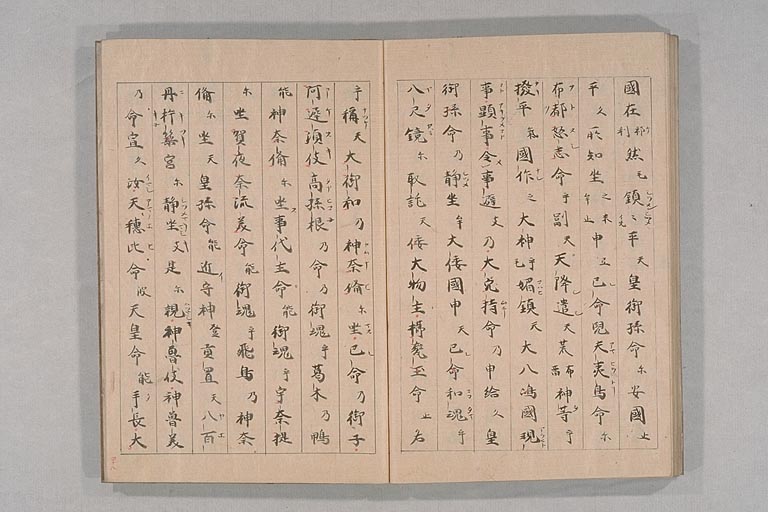 國在利然毛鎮平天皇御孫命尓安國止
平久所知坐牟止申己命兒天夷鳥命尓
布都怒志命乎副天天降遣天荒布留神等乎
撥平氣國作之大神乎毛媚鎮天大八嶋國現
事顯事令事避支乃大穴持命乃申給久皇
御孫命乃静坐牟大倭國申天己命和魂乎
八尺鏡尓取託天倭大物主櫛玉命止名
乎稱天大御和乃神奈備尓坐己命乃御子
阿遲須伎高孫根乃命乃御魂乎葛木乃鴨
能神奈備尓坐事代主命能御魂乎宇奈提
尓坐賀夜奈流美命能御魂乎飛鳥乃神奈
備尓坐天皇孫命能近守神登貢置天八百
丹杵築宮尓静坐支是尓親神魯伎神魯美
乃命宣久汝天穗比命波天皇命能手長大